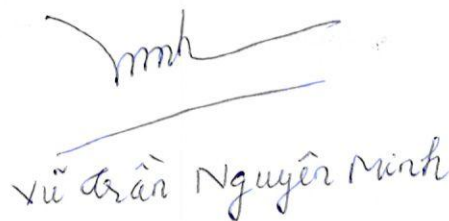 Minh
Vũ Trần Nguyên Minh